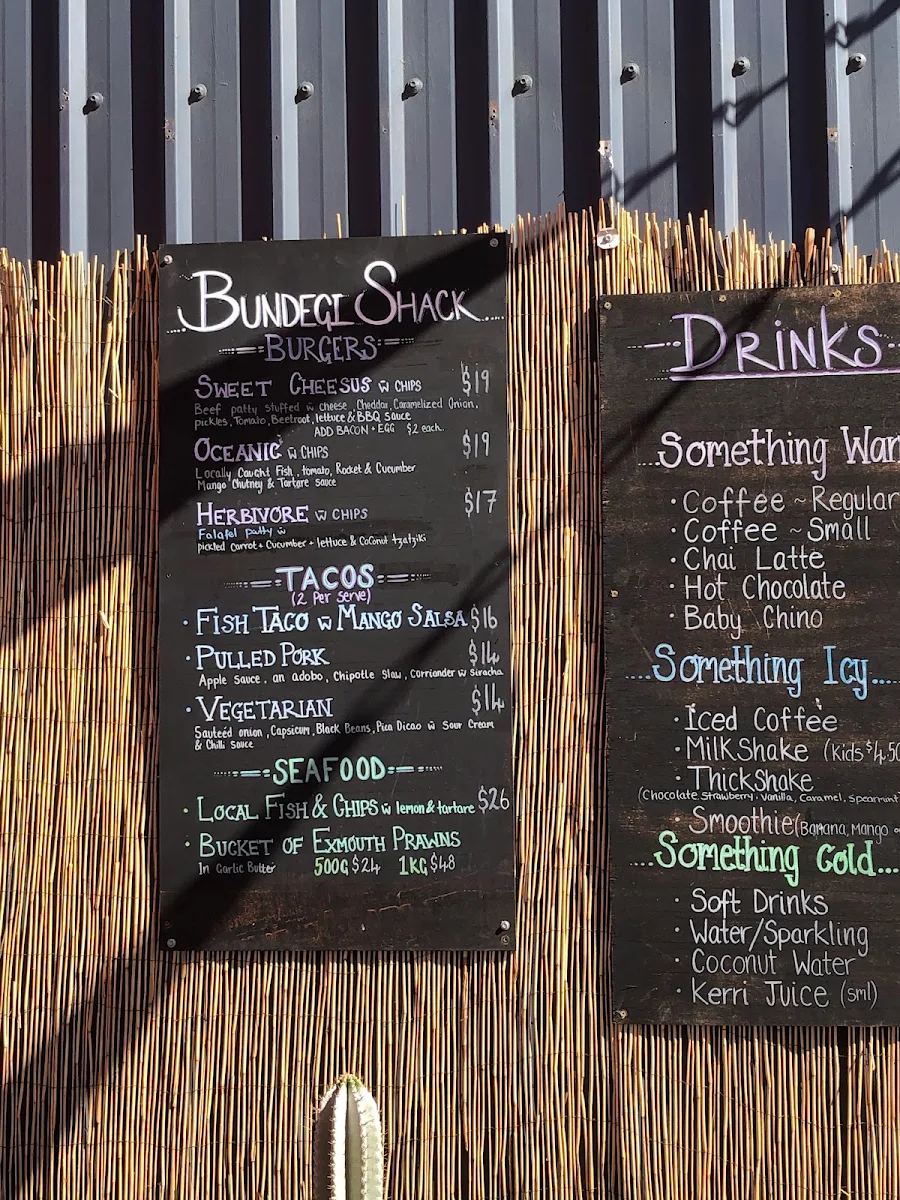 BUNDEGI SHACK
BURGERS
SWEET CHEESUS w̄ CHIPS $19
Beef patty stuffed w̄ cheese, Cheddar, Caramelized Onion,
pickles, Tomato, Beetroot, lettuce & BBQ sauce
ADD BACON + EGG $2 each.
OCEANIC w̄ CHIPS $19
Locally Caught Fish, tomato, Rocket & Cucumber
Mango Chutney & Tartare sauce
HERBIVORE w̄ CHIPS $17
Falafel patty w̄
pickled carrot + Cucumber + lettuce & Coconut tzatziki
TACOS
(2 Per serve)
· FISH TACO w MANGO SALSA $16
· PULLED PORK $14
Apple sauce, an adobo, Chipotle Slaw, Corriander w Siracha
· VEGETARIAN $14
Sauteéd onion, Capsicum, Black Beans, Pico Dicao w̄ Sour Cream
& Chilli Sauce
SEAFOOD
· LOCAL FISH & CHIPS w̄ lemon & tartare $26
· BUCKET OF EXMOUTH PRAWNS
In Garlic Butter 500G $24 1KG $48
DRINKS
Something War
· Coffee ~ Regular
· Coffee ~ Small
· Chai Latte
· Hot Chocolate
· Baby Chino
Something Icy
· Iced Coffee
· MilkShake (Kids $4.50
· ThickShake
(Chocolate, Strawberry, Vanilla, Caramel, Spearmint
· Smoothie (Banana, Mango
Something Cold
· Soft Drinks
· Water/Sparkling
· Coconut Water
· Kerri Juice (sml)